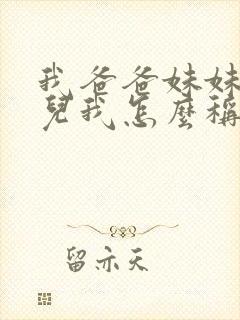 我爸爸妹妹
兒我怎麼稱
留亦天